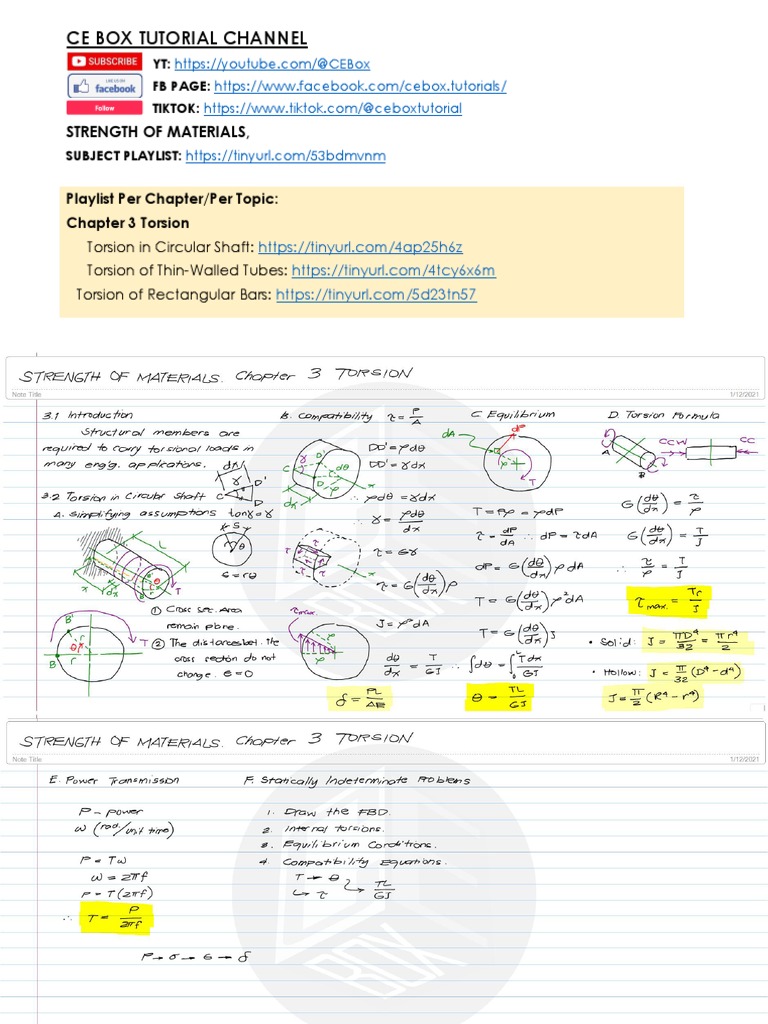 CE BOX TUTORIAL CHANNEL
SUBSCRIBE YT: https://youtube.com/@CEBox
LIKE US ON facebook FB PAGE: https://www.facebook.com/cebox.tutorials/
Follow TIKTOK: https://www.tiktok.com/@ceboxtutorial
STRENGTH OF MATERIALS,
SUBJECT PLAYLIST: https://tinyurl.com/53bdmvnm
Playlist Per Chapter/Per Topic:
Chapter 3 Torsion
Torsion in Circular Shaft: https://tinyurl.com/4ap25h6z
Torsion of Thin-Walled Tubes: https://tinyurl.com/4tcy6x6m
Torsion of Rectangular Bars: https://tinyurl.com/5d23tn57
STRENGTH OF MATERIALS. Chapter 3 TORSION
Note Title 1/12/2021
3.1 Introduction
Structural members are
required to carry torsional loads in
many eng'g. applications.
3.2 Torsion in Circular Shaft
A. Simplifying assumptions tanγ=γ
dx
D'
C
D
L
x
dx
T
S
r θ
s = rθ
B'
B
r
T
① Cross sec. Area
remain plane.
② The distances bet. the
cross section do not
change. ε=0
B. Compatibility τ = P/A
DD' = ρdθ
DD' = γdx
∴ ρdθ = γdx
∴ γ = ρdθ/dx
τ = Gγ
τ = G(dθ/dx)ρ
τmax.
J = ρ²dA
dθ/dx = T/GJ ∴ ∫dθ = ∫₀ᴸ Tdx/GJ
δ = PL/AE
θ = TL/GJ
C. Equilibrium
dA
dP
ρ
T
T = Pρ = ρdP
τ = dP/dA ∴ dP = τdA
dP = G(dθ/dx)ρdA
T = G(dθ/dx)ρ²dA
T = G(dθ/dx)J
D. Torsion Formula
A
B
CCW
CC
G(dθ/dx) = τ/ρ
G(dθ/dx) = T/J
∴ τ/ρ = T/J
τmax. = Tr/J
• Solid: J = πD⁴/32 = πr⁴/2
• Hollow: J = π/32 (D⁴-d⁴)
J = π/2 (R⁴-r⁴)
STRENGTH OF MATERIALS. Chapter 3 TORSION
Note Title 1/12/2021
E. Power Transmission
P - power
ω (rad/unit time)
P = Tω
ω = 2πf
P = T(2πf)
∴ T = P/2πf
F. Statically Indeterminate Problems
1. Draw the FBD.
2. Internal torsions.
3. Equilibrium Conditions.
4. Compatibility Equations.
T → θ
↳ τ ↳ TL/GJ
P → σ → ε → δ
BOX